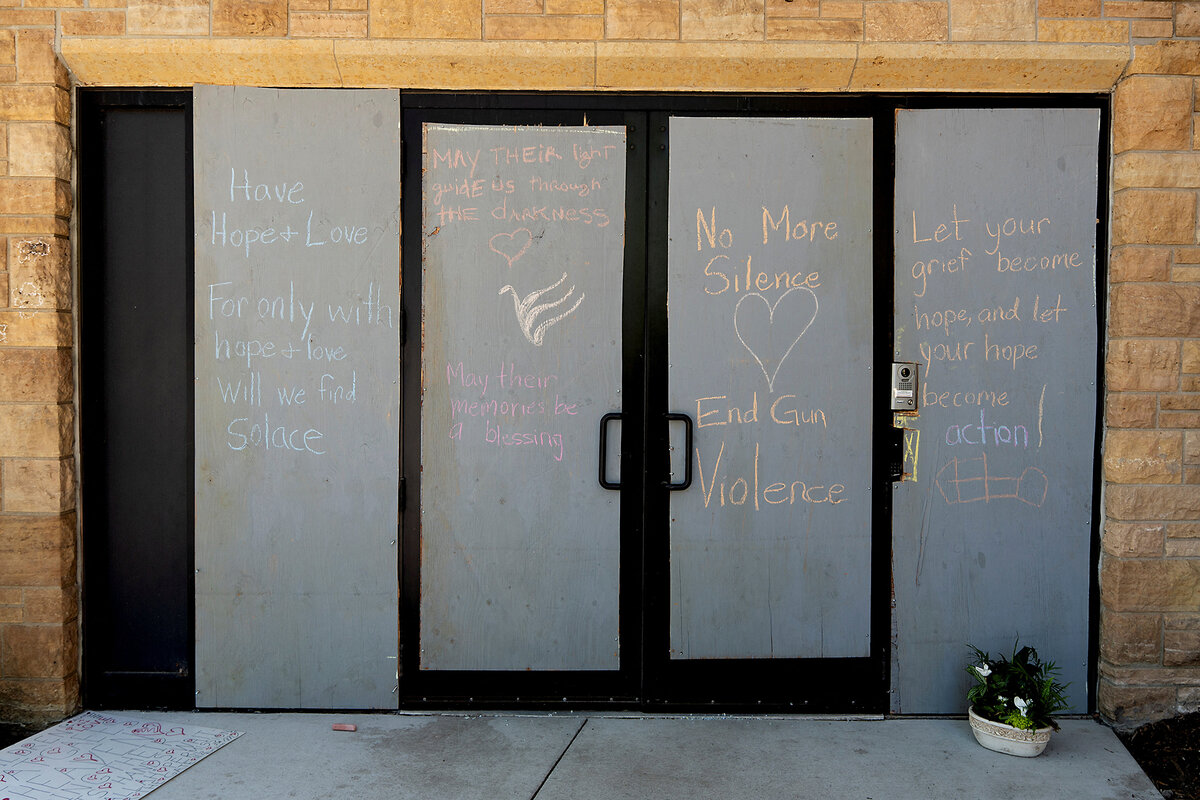 Have
Hope & Love
For only with
hope & love
will we find
Solace
MAY THEIR light
guidE us through
tHE daRKNESS
May their
memories be
a blessing
No More
Silence
End Gun
Violence
Let your
grief become
hope, and let
your hope
become
action!